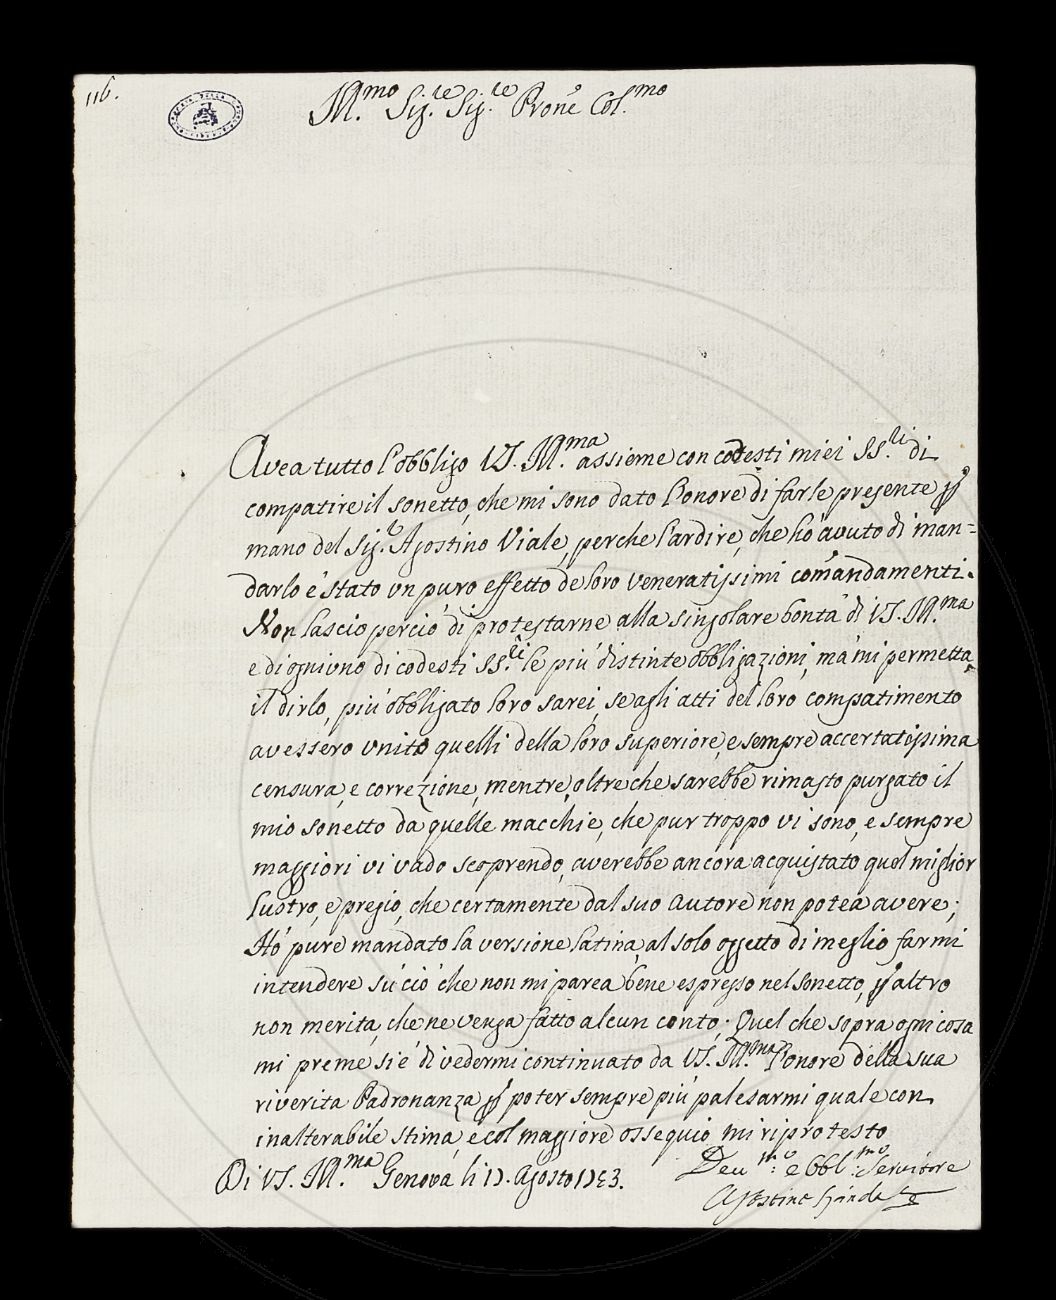 116.
Ill.mo Sig.re Sig.re Prone Col.mo
Avea tutto l'obbligo VS. Ill.ma assieme con codesti miei SS.li di
compatire il sonetto, che mi sono dato l'onore di farle presente p
mano del Sig.r Agostino Viale, perche l'ardire, che hò avuto di man=
darlo è stato un puro effetto de loro veneratissimi comandamenti.
Non lascio perciò di protestarne alla singolare bontà di VS. Ill.ma
e di ogniuno di codesti SS.li le più distinte obbligazioni, mà mi permetta
il dirlo, più obbligato loro sarei, se agli atti del loro compatimento
avessero unito quelli della loro superiore, e sempre accertatissima
censura, e correzione, mentre, oltre che sarebbe rimasto purgato il
mio sonetto da quelle macchie, che pur troppo vi sono, e sempre
maggiori vi vado scoprendo, averebbe ancora acquistato quel miglior
lustro, e pregio, che certamente dal suo autore non potea avere;
Hò pure mandato la versione latina, al solo oggetto di meglio farmi
intendere sù ciò che non mi parea bene espresso nel sonetto, p altro
non merita, che ne venga fatto alcun conto; Quel che sopra ogni cosa
mi preme si è di vedermi continuato da VS. Ill.ma l'onore della sua
riverita Padronanza p poter sempre più palesarmi quale con
inalterabile stima, e col maggiore ossequio mi riprotesto
Di VS. Ill.ma Genova li Agosto
Dev.mo e Obbl.mo Servitore
Agostino